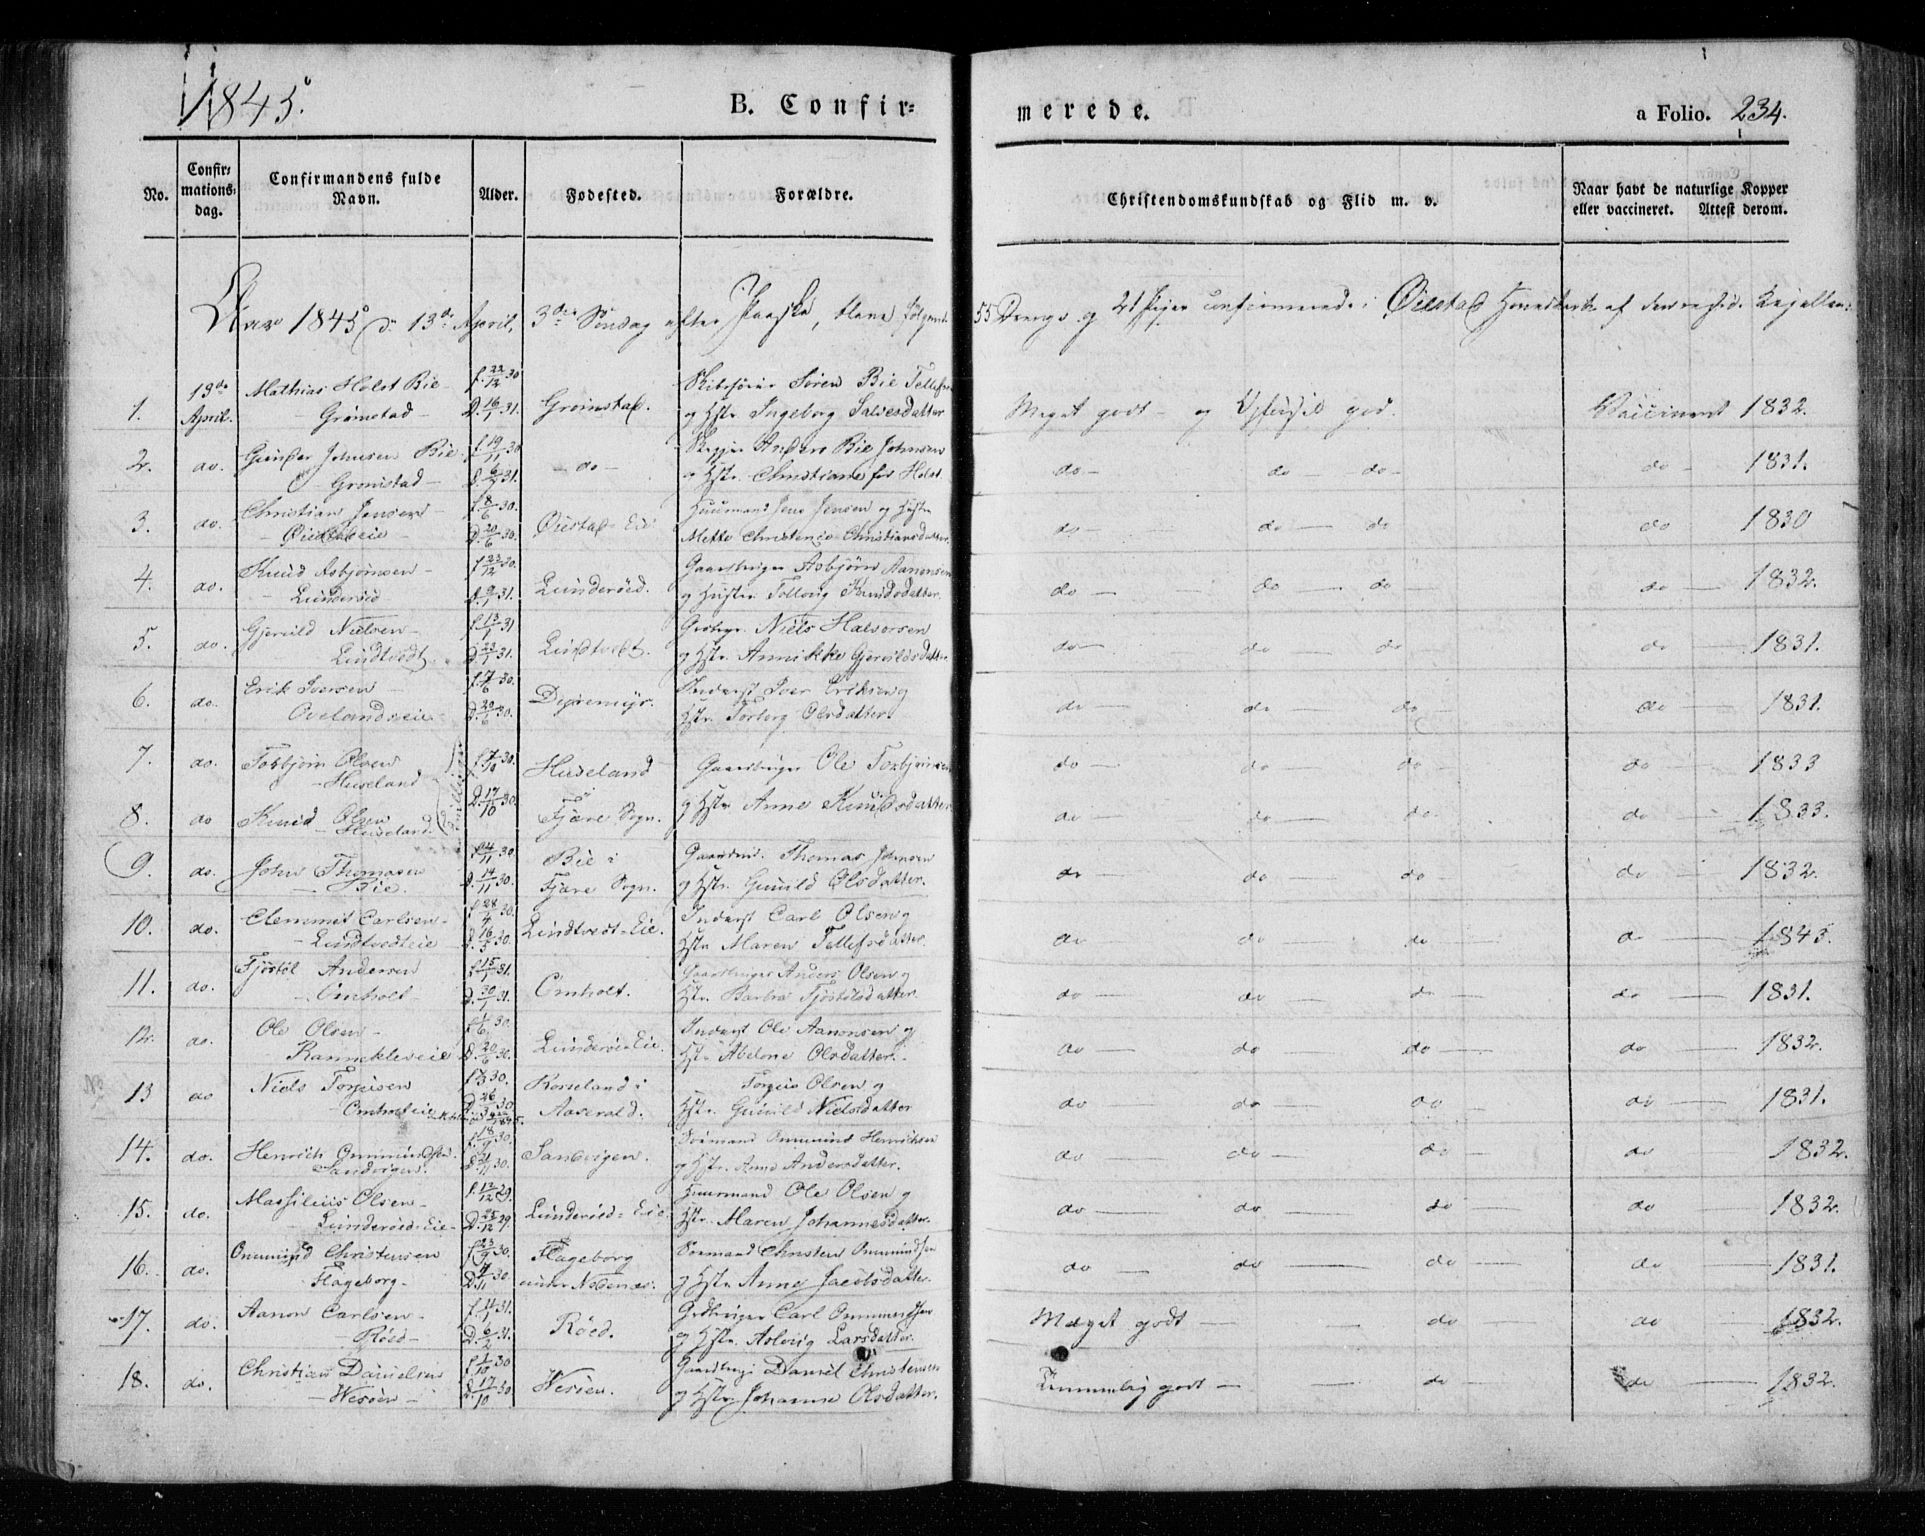 1845.
B. Confir=
merede.
a Folio. 234.
No.
Confir=
mations=
dag.
Confirmandens fulde
Navn.
Alder.
Fødested.
Forældre.
Christendomskundskab og Flid m. v.
Naar havt de naturlige Kopper
eller vaccineret. Attest derom.
Aar 1845 d 13de April, 3die Søndag efter Paaske, bleve følgende 55 Drenge og 21 Piger confirmerede i Øiestad Hovedkirke af
1. 13de April. Mathias Holst Bie - Grømstad - f. 22/12 30 D. 16/1 31. Grømstad. Søren Bie Tellefsen og Hstr. Ingeborg Salvesdatter Meget godt - og god. Vaccineret 1832.
2. do. Gunder Johnsen Bie - Grømstad - f. 19/11 30 31. - do - Anders Bie Johnsen og Hstr. Christiane Holst do - do - do - do - 1831.
3. do. Christian Jensen - f. 8/6 30. D. 20/6 30. Øiestad Eie Huusmand Jens Jensen og Hustr Mette Christence Christiansdatter. do - do - do do 1830
4. do. Knud Asbjørnsen - Lunderöed f. 23/12 30. D. 9/1 31. Lunderöed. Gaardbruger Asbjørn Aanonsen og Hustr Knudsdatter. do - do - do - do - 1832.
5. do. Gjeruld Nielsen - Lindtvedt. f. 13/1 31 D. 23/1 31. Lindtvedt. Niels Halvorsen og Hstr. Annikke Gjeruldsdatter. do - do - do do - 1831.
6. do. Erik Iversen - Ovelandseie f. 30. D. 20/6 30. Dyremyr. Inderst Iver Eriksen og Hstr. Torborg Olsdatter. do - do - do - do - 1831.
7. do. Torbjørn Olsen - Huseland f. 7/10 30. Huseland Gaardbruger Ole Torbjørnsen do - do - do - do - 1833
Tvillinger
8. do Knud Olsen - Huseland. D. 17/10 30. i Fjære Sogn. og Hstr Anne Knudsdatter do - do - do - do - 1833.
9. do. John Thomasen - Bie. f. 4/11 30 D. 14/11 30. Bie i Fjære Sogn. Thomas Johnsen og Hstr. Gunild Olsdatter. do - do - do - do - 1832.
10. do. Clemmet Carlsen - Lindtvedteie f. 28/4 30. D. 16/5 30. Lindtvedt=Eie. Inderst Carl Olsen og Hstr Maren Tellefsdatter. do - do - do - do - 1845.
11. do. Fjøstøl Andersen - Omholt - f. 15/1 31. D. 30/1 31. Omholt. Gaardbruger Anders Olsen og Hstr. Barbro Fjøstølsdatter. do - do - do - do - 1831.
12. do. Ole Olsen - Rannekleveie f. 30. D. 20/6 30. Lunderöe=Eie. Inderst Ole Aanonsen og Hstr Abelone Olsdatter. do - do do - do - 1832.
13 do Niels Torjeisen - Omholteie f. 30. D. 26/3 30 Roseland i Aaserald. Torjeis Olsen og Hstr. Gunild Nielsdatter do - do - do - do - 1831.
14. do. Henrich Ommundsen. Sandvigen. f. 18/9 30. D. 21/11 30. Sandvigen. Sømand Ommund Henrichsen og Hstr. Anne Andersdatter. do - do - do - do - 1832.
15. do. Massilius Olsen - Lunderöed=Eie - f. 13/12 29. D. 25/12 29. Lunderöed=Eie Huusmand Ole Olsen og Hstr. Maren Johannesdatter. do - do - do - do - 1832.
16. do. Ommund Christensen Flageborg - f. 23/9 30. D. 30. Flageborg under Nedenæs. Sømand Christen Ommundsen og Hstr Anne Jacobsdatter. do - do - do - do - 1831.
17. do. Aanon Carlsen - Röed - f. 31. D. 6/2 31. Röed. Carl Ommundsen og Hstr Aslevig Larsdatter. Meget godt - - do - do - 1832.
18. do. Christian Danielsen - Wesöen - f. 1/10 30 D. 17/10 30 Wesöen. Daniel Christensen og Hstr Johanne Olsdatter. Temmelig godt - - do - do - 1832.